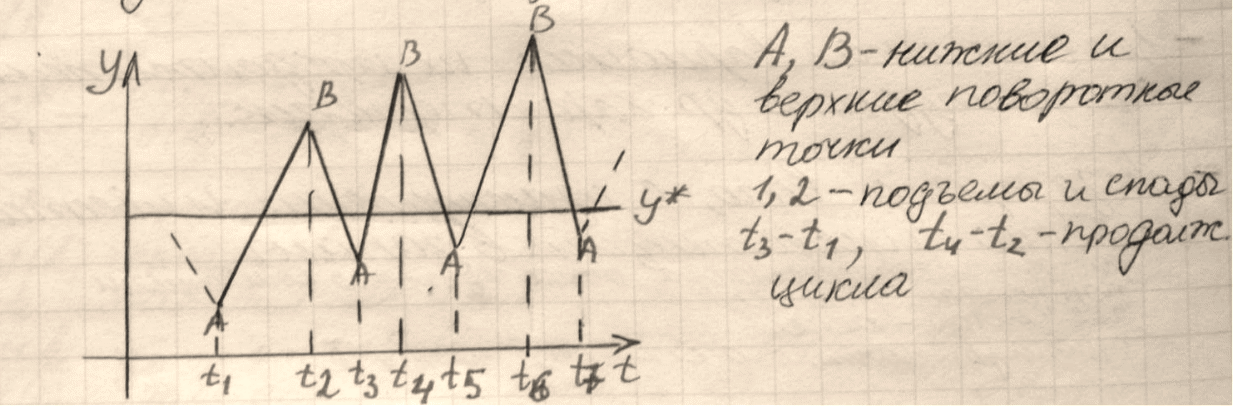 y
B
B
B
y*
A
A
A
A
t1 t2 t3 t4 t5 t6 t7 t
A, B - нижние и
верхние поворотные
точки
1, 2 - подъемы и спады
t3-t1, t4-t2 - продолж.
цикла